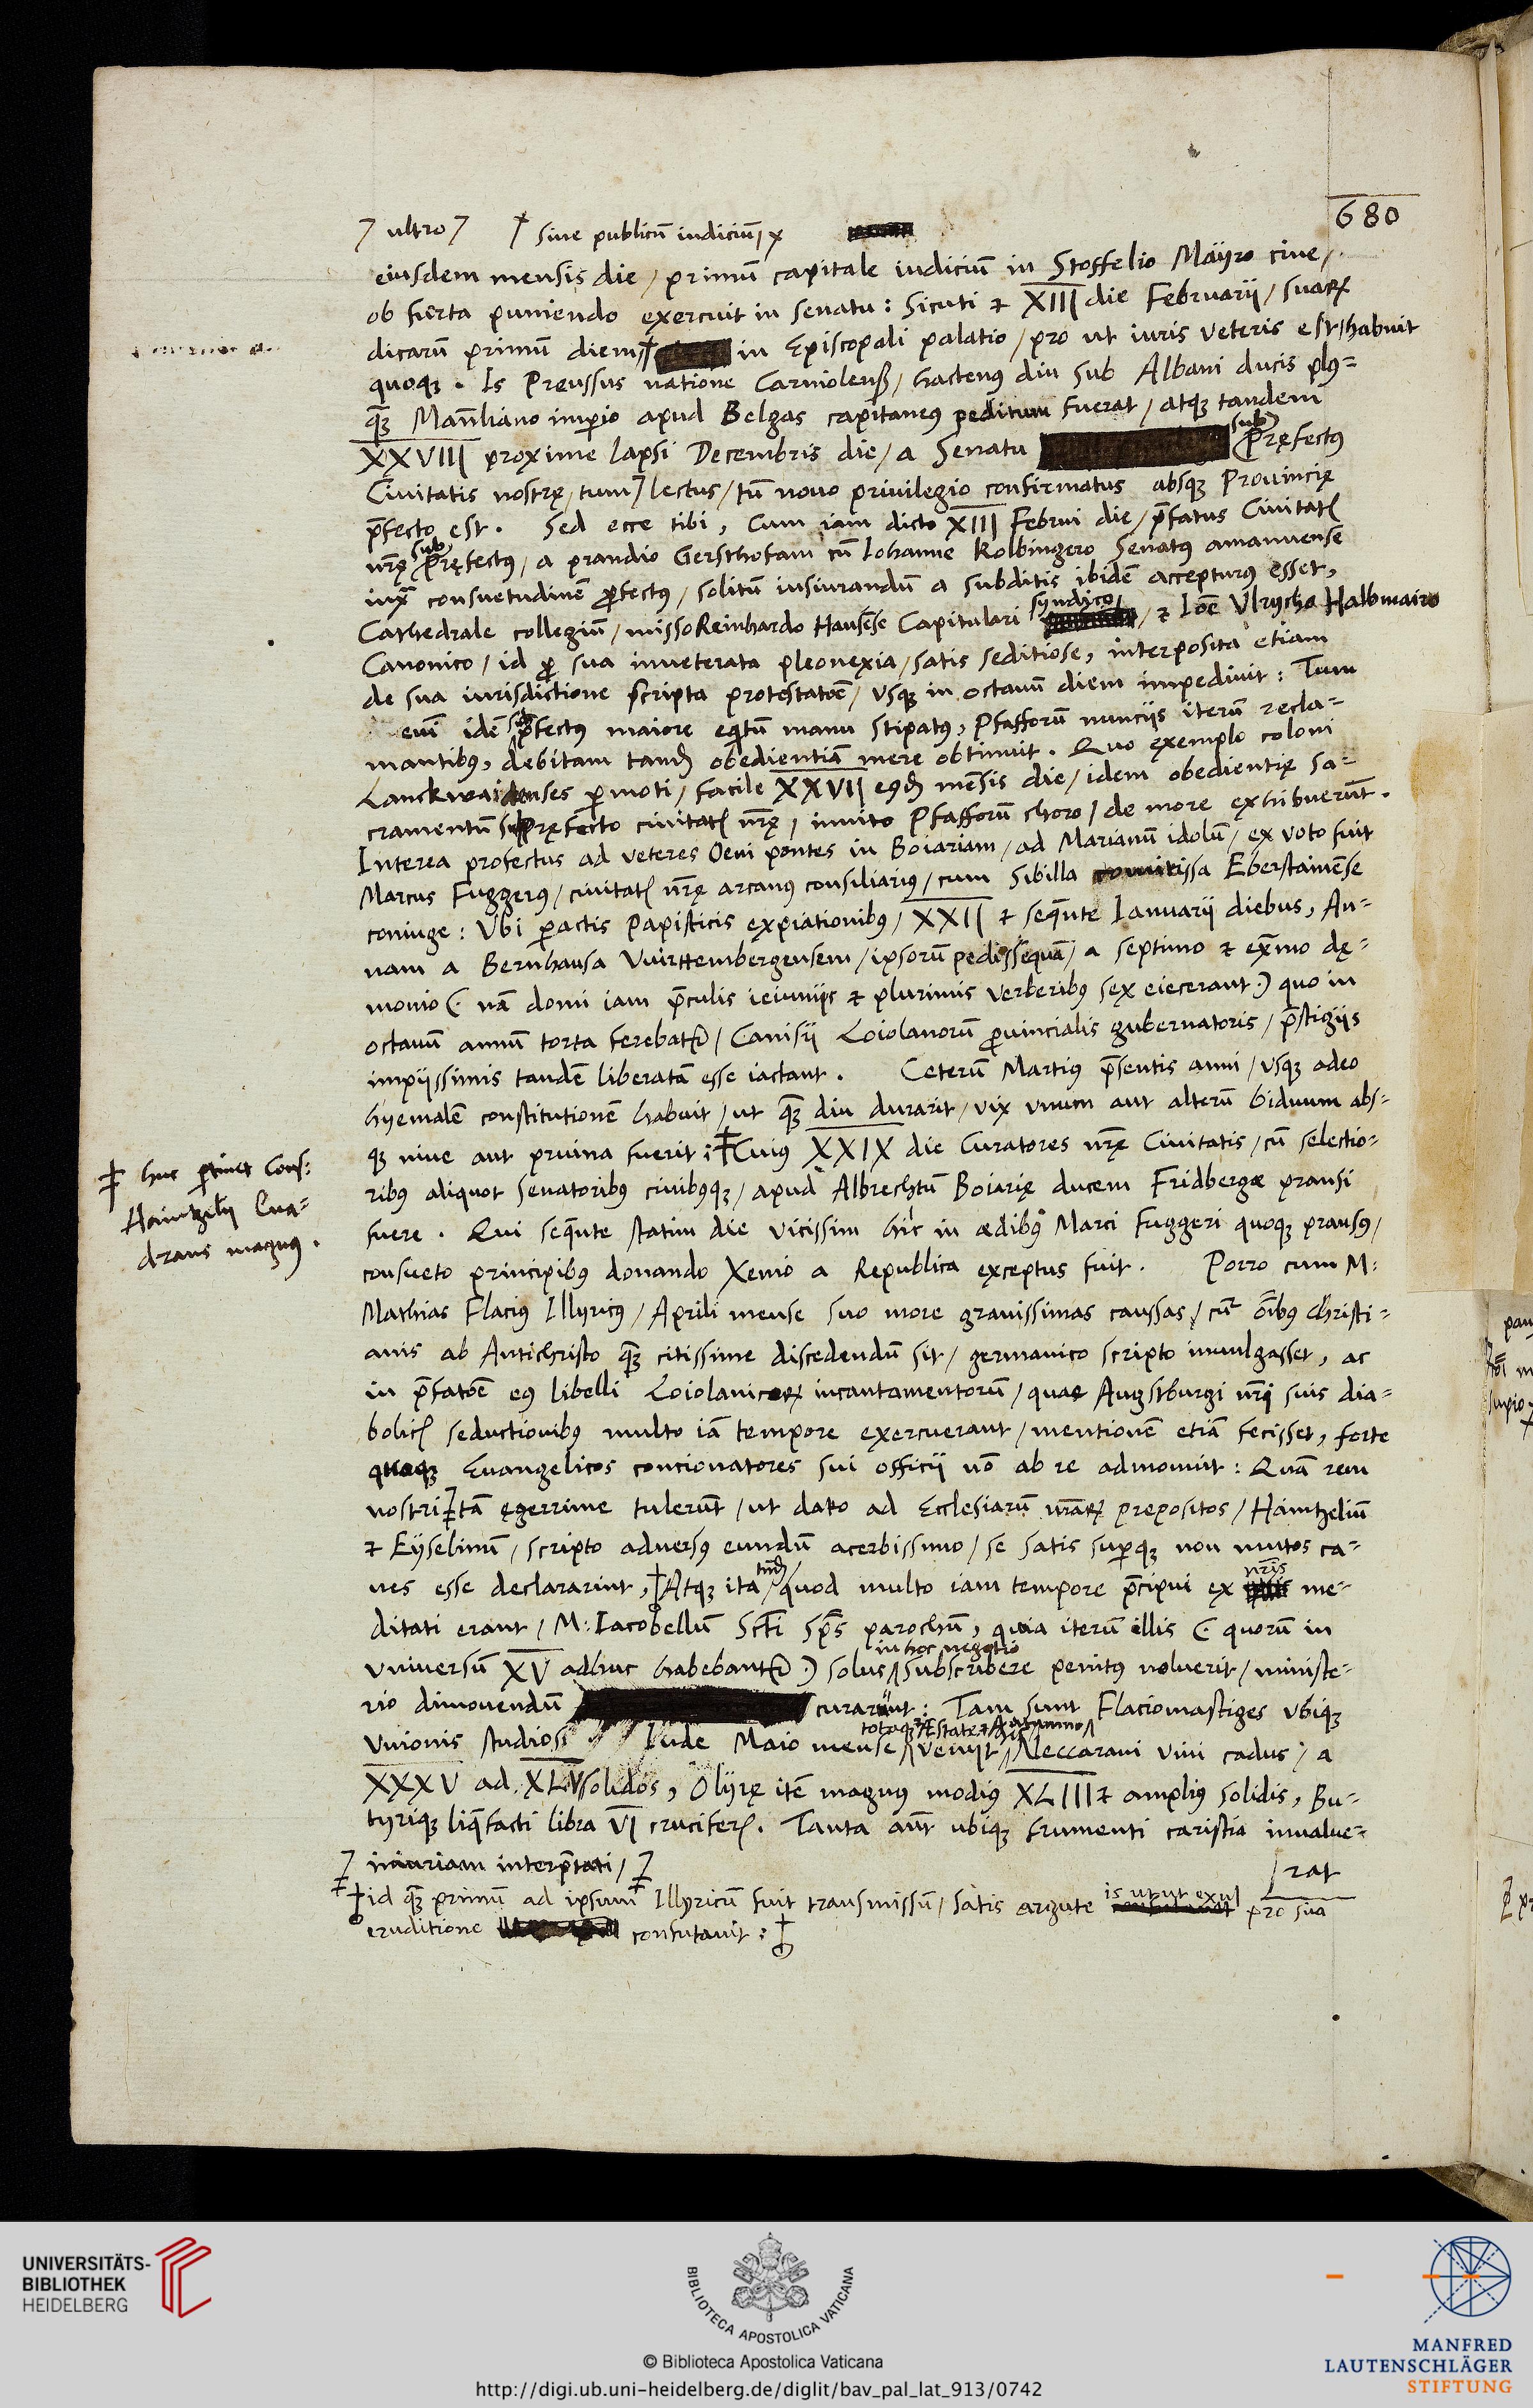 680
⁊ ultro ⁊ † siue publicū iudiciū / x
eiusdem mensis die / primū capitale iudiciū in Stoffelio Mäyro ciue /
ob furta puniendo exercuit in senatu : Sicuti & XIII die Februarii / suarꝝ
dicarū primū diem † in Episcopali palatio / pro ut iuris veteris est / habuit
quoqꝫ . Is Preussus natione Carniolenß / hactenꝰ diu sub Albani ducis plꝰ=
qꝫ Manliano imperio apud Belgas capitaneꝰ peditum fuerat / atqꝫ tandem
XXVIII proxime lapsi Decembris die / a Senatu sub Pręfectꝰ
Ciuitatis nostrę / tum ⁊ lectus / tū nouo priuilegio confirmatus absqꝫ Prouincię
p̄fecto est . Sed ecce tibi , Cum iam dicto XIII Februi die / p̄fatus Ciuitatꝭ
nr̄ę sub Pręfectus / a prandio Gersthofam cū Iohanne Kolbingero Senatꝰ amanuense
iux̄ consuetudinē ꝓfectꝰ / solitū iusiurandū a subditis ibidē accepturꝰ esset ,
Cathedrale collegiū / misso Reinhardo Hausēse Capitulari syndico / & Ioē Vlrycho Halbmairo
Canonico / id ꝓ sua inueterata pleonexia / satis seditiose , interposita etiam
de sua iurisdictione scripta protestatoē / vsqꝫ in octauū diem impediuit : Tum
em̄ idē sub p̄fectus maiore eq̄tum manu stipatꝰ , Pfafforū nunciis iterū recla=
mantibꝰ , debitam tand obedientiā mere obtinuit . Quo exemplo coloni
Lanckwaidenses ꝑmoti / facile XXVII eꝰd mēsis die / idem obedientię sa=
cramentū sub Pręfecto ciuitatꝭ nr̄ę / inuito Pfafforū choro / de more exhibuerūt .
Interea profectus ad veteres Oeni pontes in Boiariam / ad Marianū idolū / ex voto fuit
Marcus Fuggerꝰ / ciuitatꝭ nr̄ę arcanꝰ consiliariꝰ / cum Sibilla comitissa Eberstainēse
coniuge : Vbi ꝑactis Papisticis expiationibꝰ / XXII & seq̄nte Ianuarii diebus , An=
nam a Bernhausa Vuirttembergensem / ipsorū pedissequā / a septimo & ex̄mo dę=
monio (. nā domi iam p̄culis ieiuniis & plurimis verberibꝰ sex eiecerant .) quo in
octauū annū torta ferebatur / Canisii Loiolanorū ꝓuincialis gubernatoris / p̄stigiis
impiissimis tandē liberatā esse iactant . Ceterū Martiꝰ p̄sentis anni / vsqꝫ adeo
hyemalē constitutionē habuit / ut qꝫ diu durarit / vix vnum aut alterū biduum abs=
qꝫ niue aut pruina fuerit : ‡ Cuius XXIX die Curatores nr̄ę Ciuitatis / cū selectio=
ribꝰ aliquot senatoribꝰ ciuibꝰqꝫ / apud Albrechtū Boiarię ducem Fridbergæ pransi
fuere . Qui seq̄nte statim die vicissim hic in ædibꝰ Marci Fuggeri quoqꝫ pransꝰ /
consueto principibꝰ donando Xenio a Republica exceptus fuit . Porro cum M :
Mathias Flaciꝰ Illyricꝰ / Aprili mense suo more grauissimas caussas / cur oībꝰ Christi=
anis ab Antichristo qꝫ citissime discedendū sit / germanico scripto inuulgasset , ac
in p̄fatoē eꝰ libelli Loiolanicorꝝ incantamentorū / quae Augstburgi nr̄i suis dia=
bolicꝭ seductionibꝰ multo iā tempore exercuerant / mentionē etiā fecisset , forte
quoqꝫ Euangelicos concionatores sui officii nō ab re admonuit : Quā rem
nostri ‡ tā egerrime tulerūt / ut dato ad Ecclesiarū nr̄arꝝ prepositos / Haintzeliū
& Eyselinū / scripto aduersꝰ eundū acerbissimo / se satis suꝑqꝫ non mutos ca=
nes esse declararint , † Atqꝫ ita tand / quod multo iam tempore p̄cipui ex nr̄is me=
ditati erant / M : Iacobellū Scti Sp̄s parochū , quia iterū illis (. quorū in
vniuersū XV adhuc habebantur .) solus in hoc negotio subscribere penitꝰ noluerit / ministe=
rio dimouendū curarūt : Tam sunt Flaciomastiges vbiqꝫ
Vnionis studiosi . Inde Maio mense totaqꝫ Æstate & Autumno veniit / Neccarani vini cadus / a
XXXV ad XLV solidos , Olyrę itē magnus modiꝰ XLIII & ampliꝰ solidis , Bu=
tyriqꝫ liq̄facti libra VI cruciferꝭ . Tanta aūt ubiqꝫ frumenti caristia inualue=
rat
‡ huc ꝑtinet Cons:
Haintzelii Qua=
drans magnꝰ .
‡ iniuriam interp̄tati / ‡
† id qꝫ primū ad ipsum Illyricū fuit transmissū / satis argute is ut ut exul pro sua
eruditione confutauit : †
UNIVERSITÄTS-
BIBLIOTHEK
HEIDELBERG
BIBLIOTECA APOSTOLICA VATICANA
© Biblioteca Apostolica Vaticana
http://digi.ub.uni-heidelberg.de/diglit/bav_pal_lat_913/0742
MANFRED
LAUTENSCHLÄGER
STIFTUNG